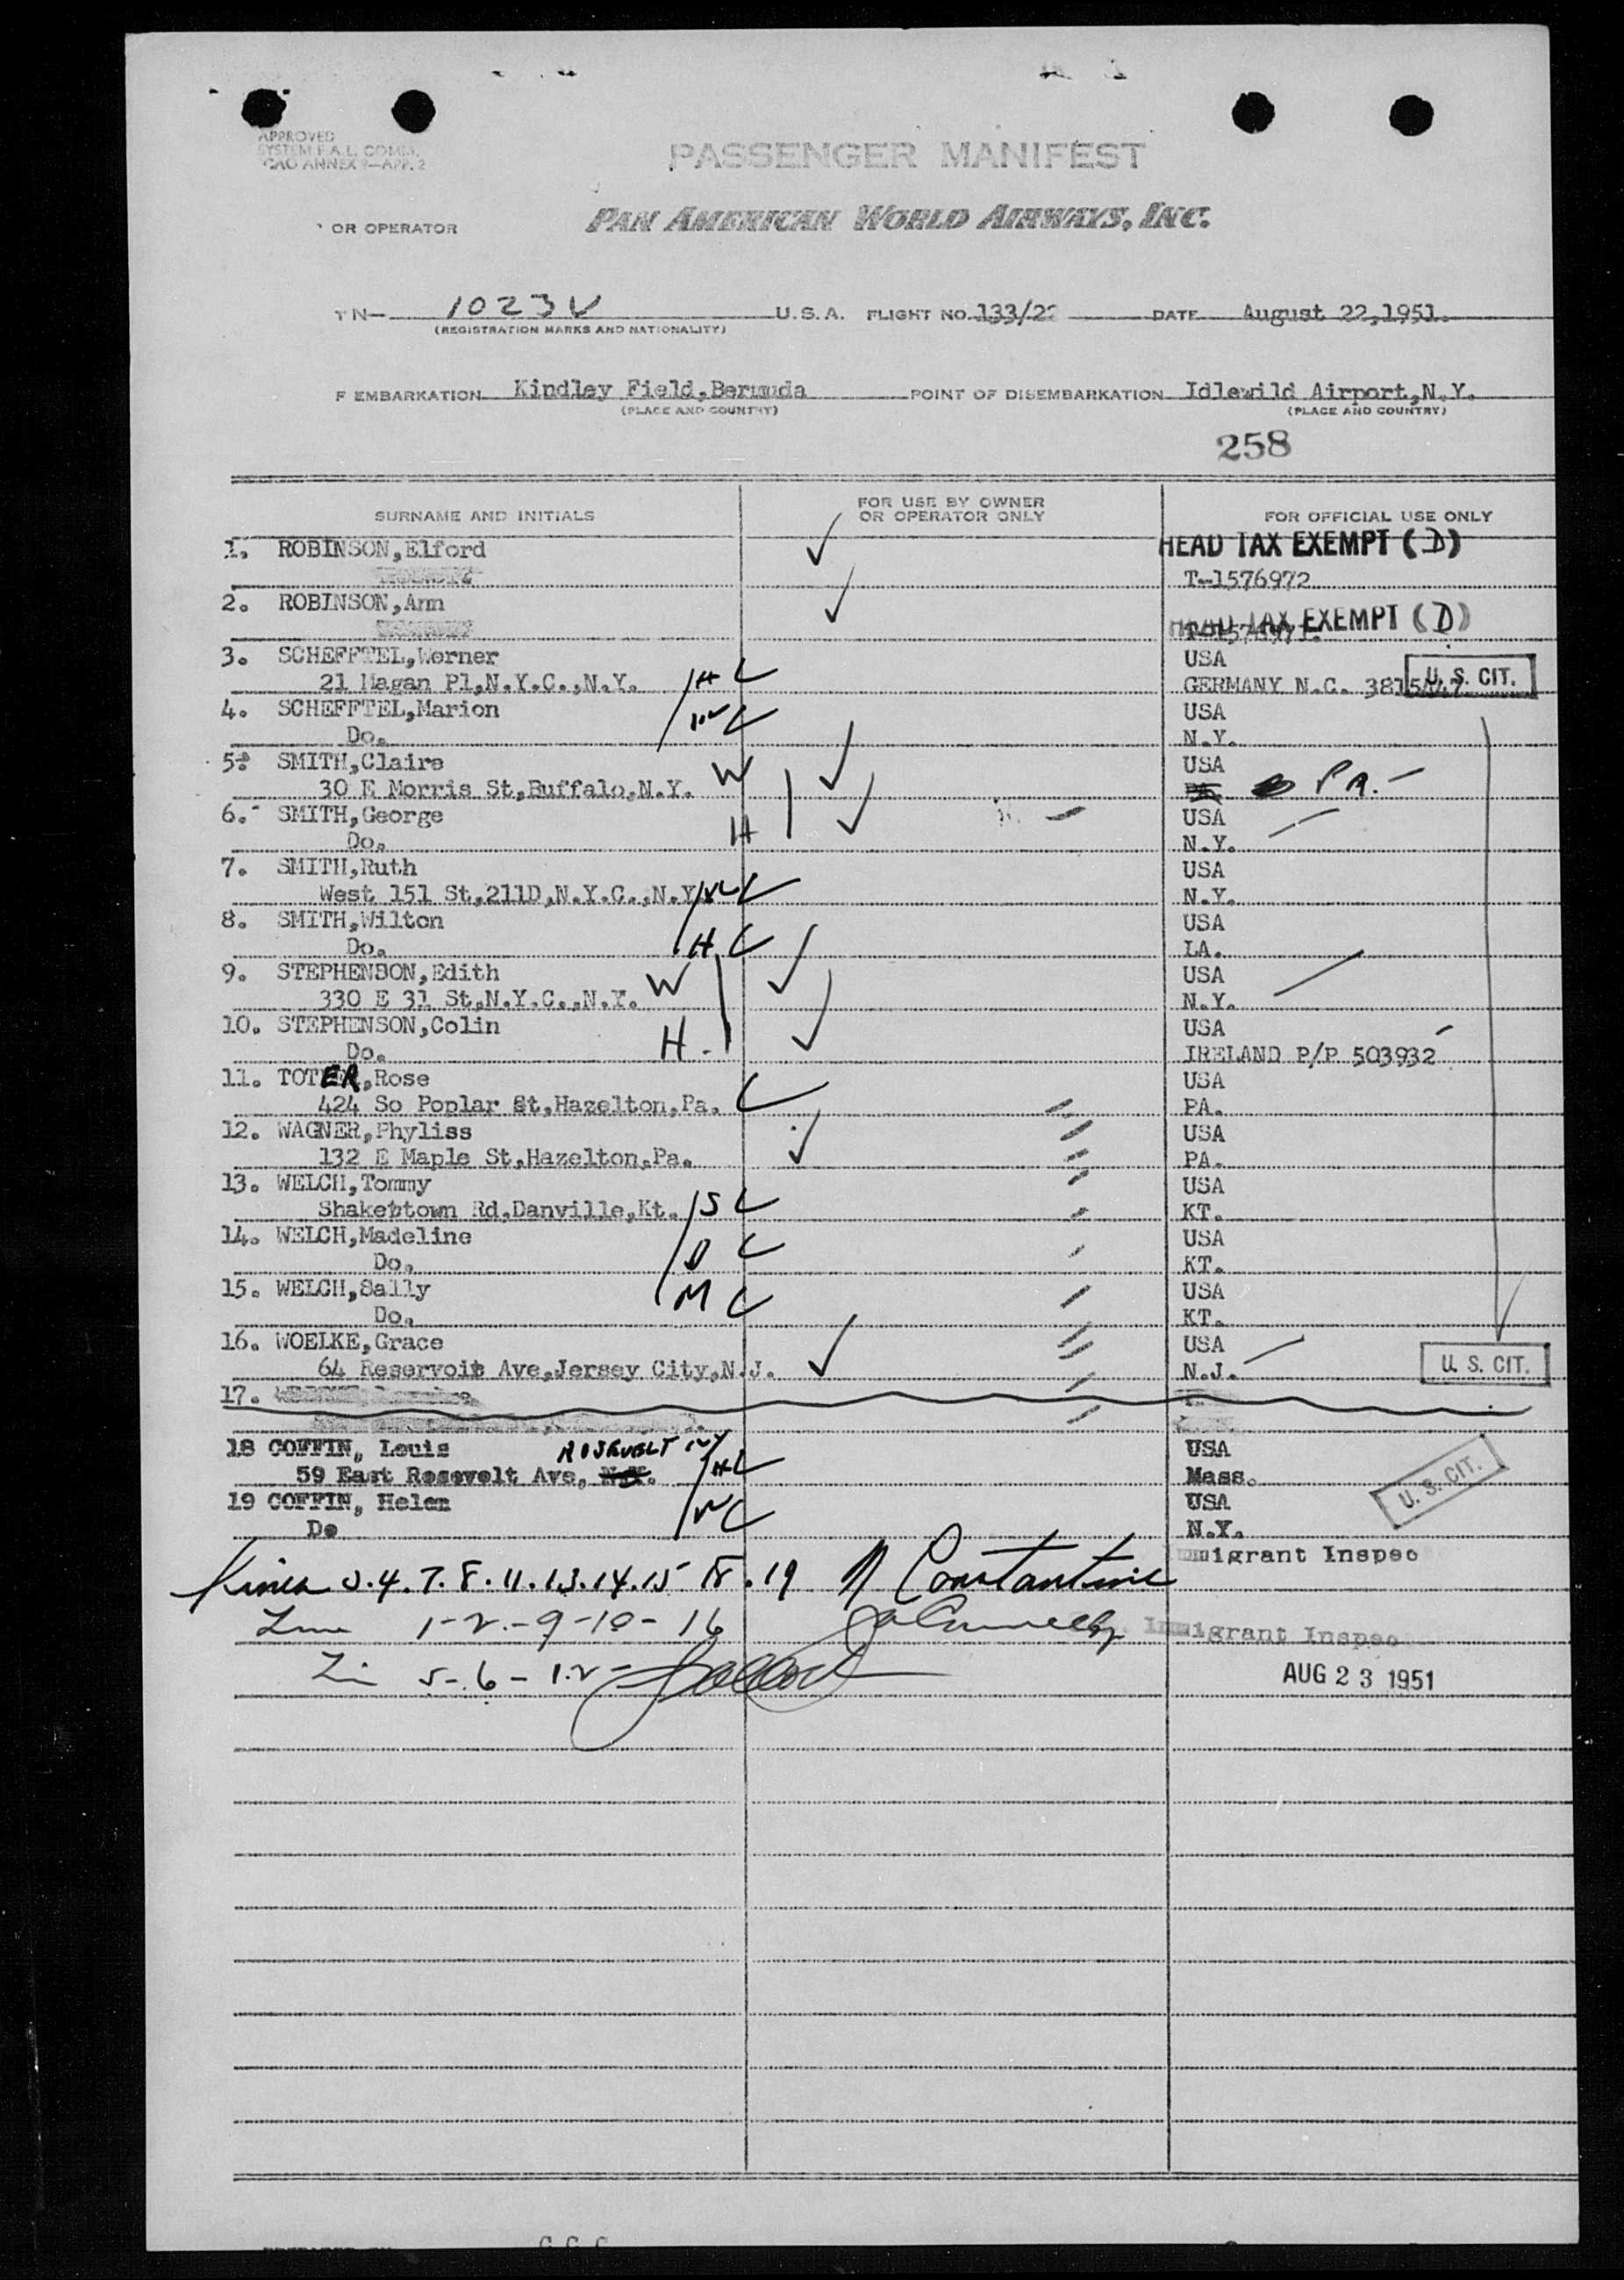 APPROVED
SYSTEM F.A.L. COMM.
PASSENGER MANIFEST
OR OPERATOR
PAN AMERICAN WORLD AIRWAYS, INC.
N— 1023V U.S.A. FLIGHT NO. 133/22 DATE August 22,1951.
(REGISTRATION MARKS AND NATIONALITY)
F EMBARKATION Kindley Field,Bermuda POINT OF DISEMBARKATION Idlewild Airport,N.Y.
(PLACE AND COUNTRY) (PLACE AND COUNTRY)
258
SURNAME AND INITIALS FOR USE BY OWNER OR OPERATOR ONLY FOR OFFICIAL USE ONLY
1. ROBINSON,Elford HEAD TAX EXEMPT (D)
T-1576972
2. ROBINSON,Ann
HEAD TAX EXEMPT (D)
3. SCHEFFTEL,Werner USA
21 Magan Pl,N.Y.C.,N.Y. H GERMANY N.C. U.S. CIT.
4. SCHEFFTEL,Marion W USA
Do. N.Y.
5. SMITH,Claire W USA
30 E Morris St,Buffalo,N.Y. PA.
6. SMITH,George USA
Do. H N.Y.
7. SMITH,Ruth USA
West 151 St,211D,N.Y.C.,N.Y. W N.Y.
8. SMITH,Wilton USA
Do. H LA.
9. STEPHENSON,Edith W USA
330 E 31 St,N.Y.C.,N.Y. N.Y.
10. STEPHENSON,Colin USA
Do. H IRELAND P/P 503932
11. TOTER,Rose USA
424 So Poplar St,Hazelton,Pa. PA.
12. WAGNER,Phyliss USA
132 E Maple St,Hazelton,Pa. PA.
13. WELCH,Tommy USA
Shakertown Rd,Danville,Kt. S KT.
14. WELCH,Madeline USA
Do. D KT.
15. WELCH,Sally USA
Do. M KT.
16. WOELKE,Grace USA
64 Reservoir Ave,Jersey City,N.J. N.J. U.S. CIT.
17.
18 COFFIN, Louis ROSEVELT NY USA
59 East Rosevelt Ave, H Mass. U.S. CIT.
19 COFFIN, Helen USA
Do W N.Y.
Immigrant Inspec
3.4.7.8.11.13.14.15 18.19 N Constantine
1-2-9-10-16 Immigrant Inspec
5-6-12- AUG 23 1951